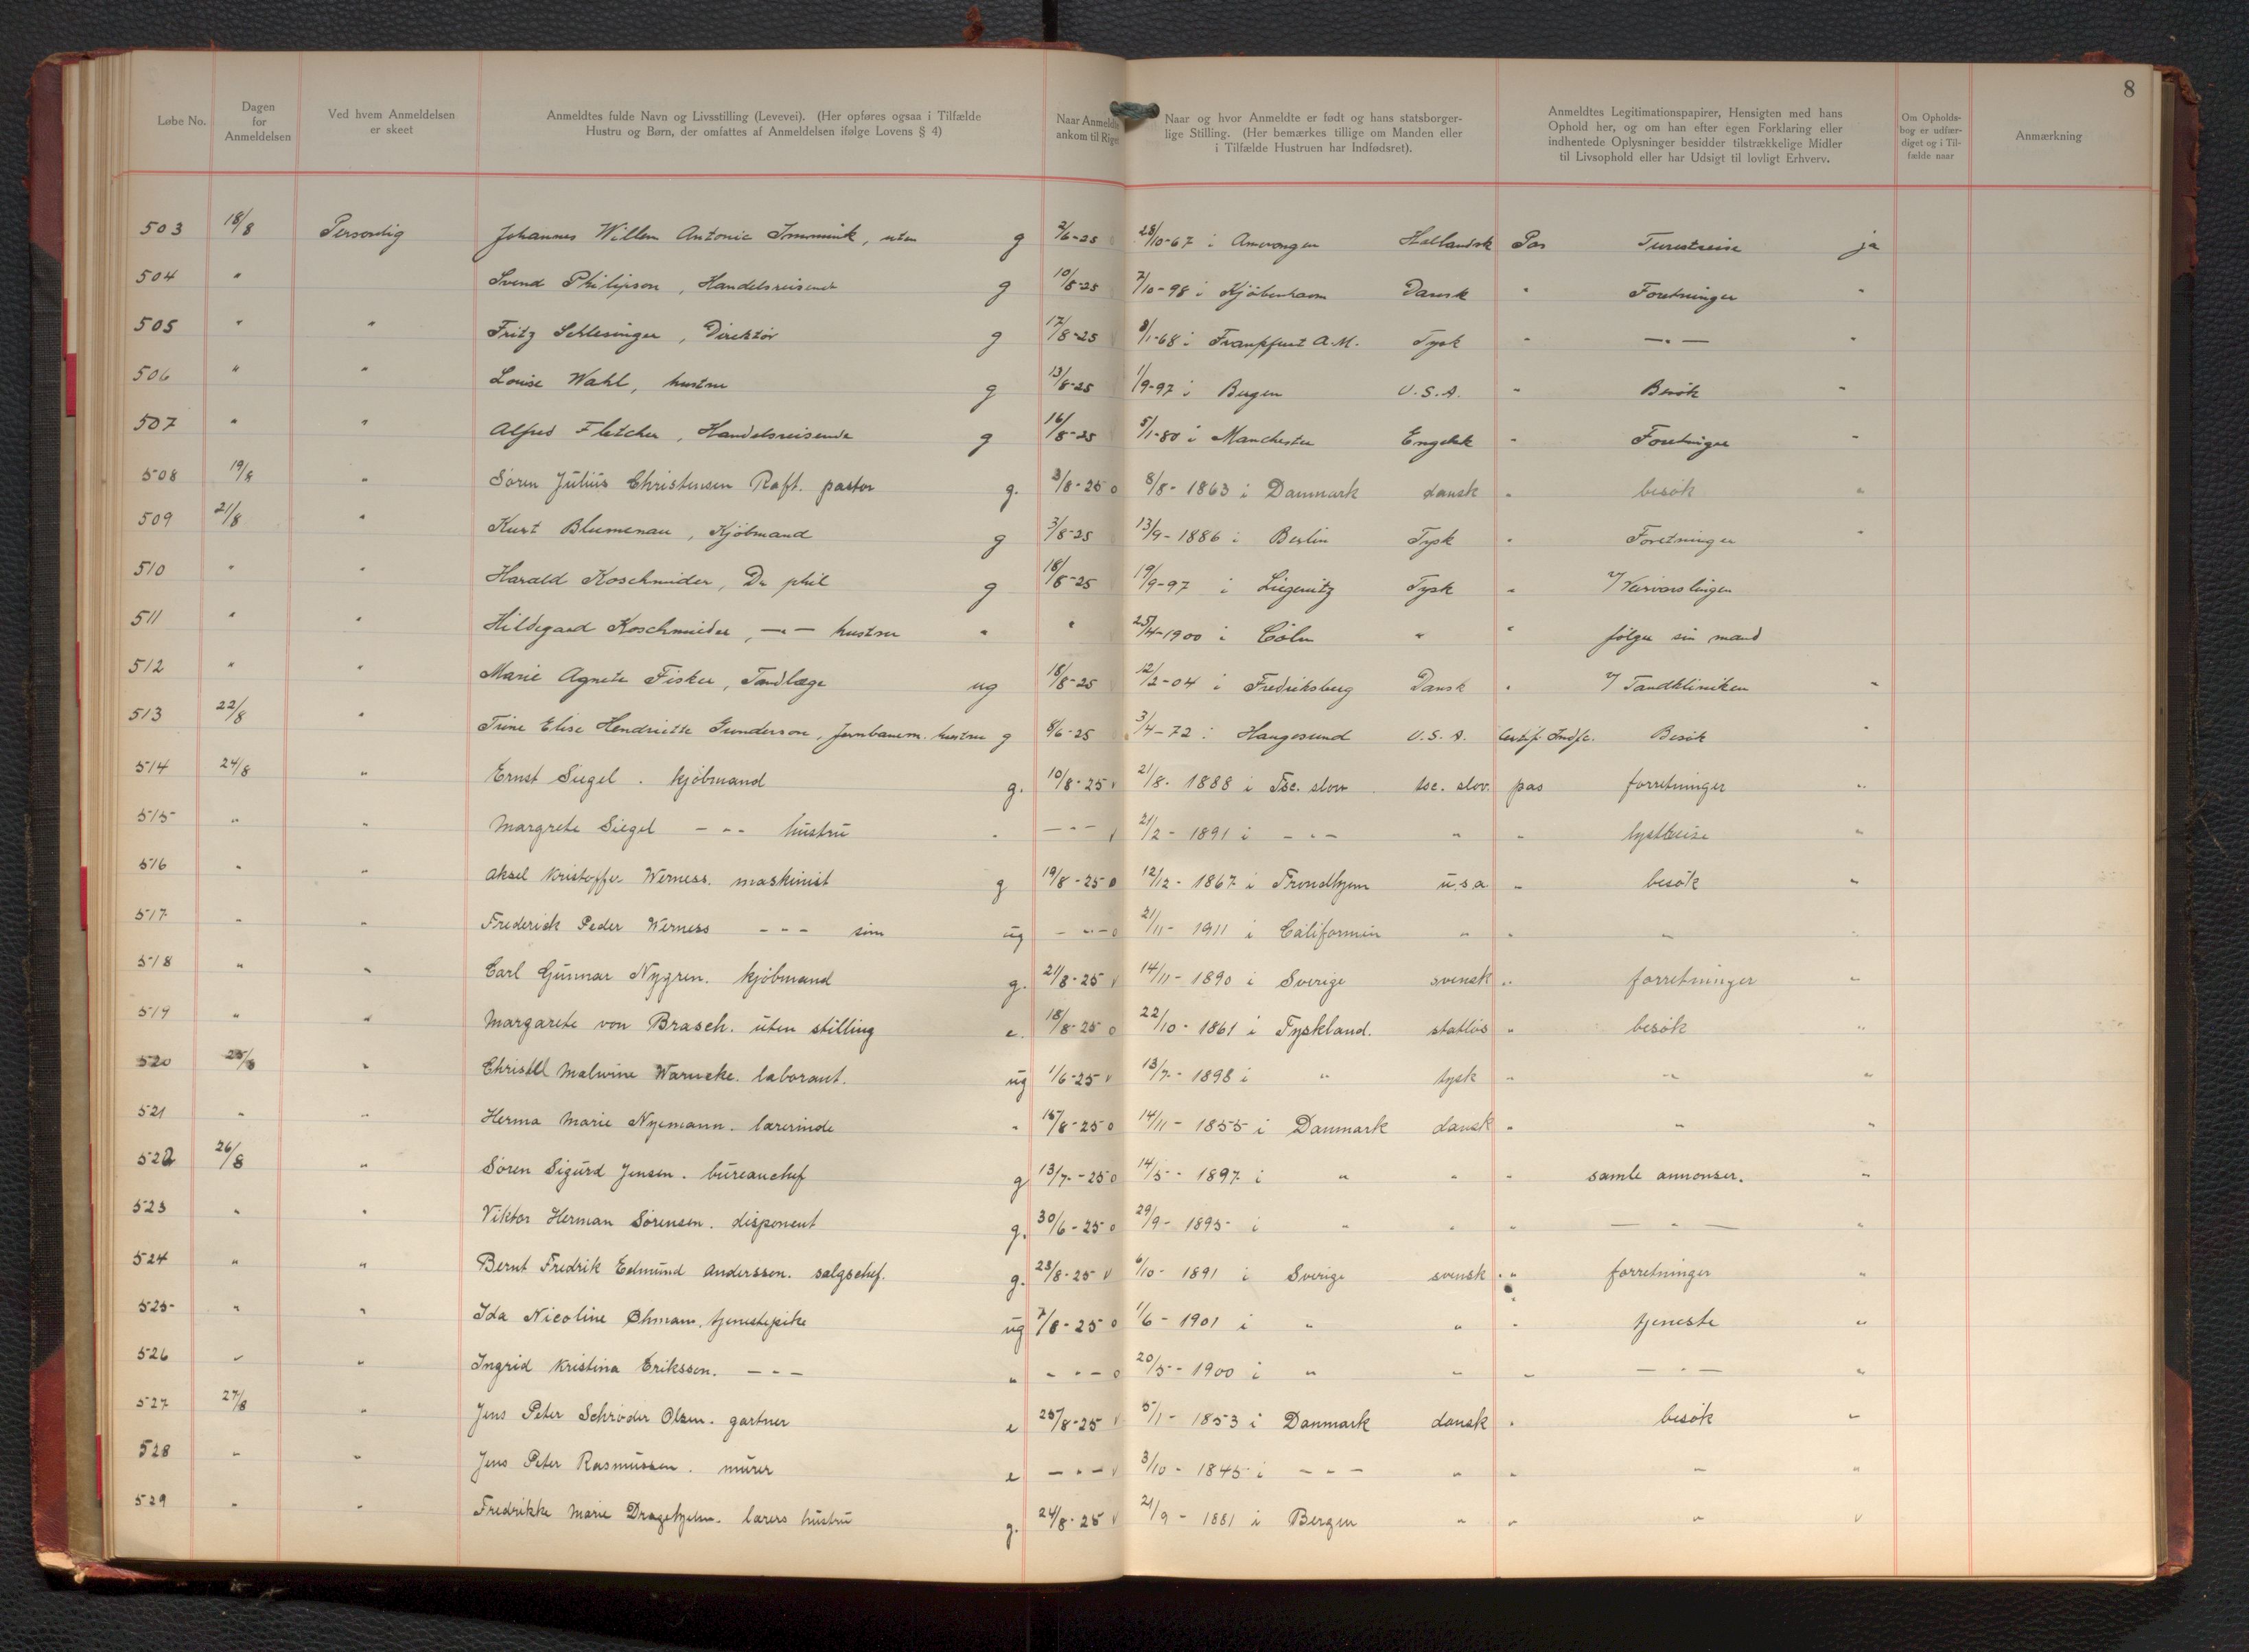 8
Løbe No. | Dagen for Anmeldelsen | Ved hvem Anmeldelsen er skeet | Anmeldtes fulde Navn og Livsstilling (Levevei). (Her opføres ogsaa i Tilfælde Hustru og Børn, der omfattes af Anmeldelsen ifølge Lovens § 4) | Naar Anmeldte ankom til Riget | Naar og hvor Anmeldte er født og hans statsborgerlige Stilling. (Her bemærkes tillige om Manden eller i Tilfælde Hustruen har Indfødsret). | Anmeldtes Legitimationspapirer, Hensigten med hans Ophold her, og om han efter egen Forklaring eller indhentede Oplysninger besidder tilstrækkelige Midler til Livsophold eller har Udsigt til lovligt Erhverv. | Om Opholdsbog er udfærdiget og i Tilfælde naar | Anmærkning
503 18/8 Personlig Johannes Willem Antonie Immink, uten g 2/6-25 28/10-67 i Amerongen Hallandsk Pas Turistreise ja
504 " Svend Philipson, Handelsreisende g 10/8-25 7/10-98 i Kjöbenhavn Dansk " Foretninger "
505 " " Fritz Schlesinger, Direktör g 17/8-25 8/1-68 i Frankfurt A.M. Tysk " —"— "
506 " " Louise Wahl, hustru g 13/8-25 1/9-97 i Bergen U.S.A. " Besök "
507 " " Alfred Fletcher, Handelsreisende g 16/8-25 5/1-80 i Manchester Engelsk " Foretninger "
508 19/8 " Sören Julius Christensen Raft. pastor g. 3/8-25 o 8/8-1863 i Danmark dansk " besök "
509 21/8 " Kurt Blumenau, Kjöbmand g 3/8-25 13/9-1886 i Berlin Tysk " Foretninger "
510 " " Harald Koschmieder, Dr phil g 18/8-25 19/9-97 i Liegnitz Tysk " v/ Veirvarslingen
511 " " Hildegard Koschmieder, —"— hustru " " 25/4-1900 i Cöln " " fölger sin mand
512 " " Marie Agnete Fisker, Tandlæge ug 18/8-25 12/2-04 i Fredriksberg Dansk " v/ Tandkliniken "
513 22/8 " Trine Elise Hendriette Gunderson, Jernbanem. hustru g 8/6-25 3/4-72 i Haugesund U.S.A. Certif. Besök "
514 24/8 " Ernst Siegel. kjöbmand g. 10/8-25 v 21/8-1888 i Tsc. slov tsc. slov. pas forretninger "
515 " " Margrete Siegel -"- hustru " —"— v 21/2-1891 i -"- " " lystreise "
516 " " Aksel Kristoffer Werness. maskinist g 19/8-25 o 12/12-1867 i Trondhjem u.s.a. " besök "
517 " " Frederick Peder Werness -"- sön ug -"- o 21/11-1911 i Californien " " " "
518 " " Carl Gunnar Nygren. kjöbmand g. 21/8-25 v 14/11-1890 i Sverige svensk " forretninger "
519 " " Margarete von Brasch. uten stilling e. 18/8-25 o 22/10-1861 i Tyskland. statlös " besök "
520 25/8 " Christel Malwine Warneke. laborant. ug 1/6-25 v 13/7-1898 i " tysk " " "
521 " " Herma Marie Nyemann. lærerinde " 15/8-25 o 14/11-1855 i Danmark dansk " " "
522 26/8 " Sören Sigurd Jensen. bureauchef g 13/7-25 o 14/5-1897 i " " " samle annonser. "
523 " " Viktor Herman Sörensen. disponent g. 30/6-25 o 29/9-1895 i " " " —"— "
524 " " Bernt Fredrik Edmund Anderssen. salgschef. g. 23/8-25 v 6/10-1891 i Sverige svensk " forretninger "
525 " " Ida Nicoline Öhman. tjenestepike ug 7/8-25 o 1/6-1901 i " " " tjeneste "
526 " " Ingrid Kristina Eriksson. -"- " -"- o 20/5-1900 i " " " —"— "
527 27/8 " Jens Peter Schröder Olsen. gartner e 25/8-25 v 5/1-1853 i Danmark dansk " besök "
528 " " Jens Peter Rasmussen. murer e —"— v 3/10-1845 i -"- " " " "
529 " " Fredrikke Marie Dragehjelm. lærers hustru g. 24/8-25 v 21/9-1881 i Bergen " " " "